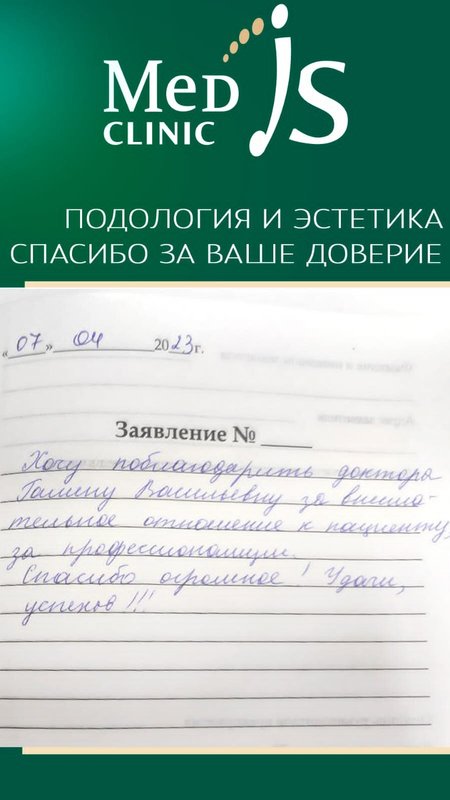 MED JS
CLINIC
ПОДОЛОГИЯ И ЭСТЕТИКА
СПАСИБО ЗА ВАШЕ ДОВЕРИЕ
«07» 04 2023г.
Заявление № ____
Хочу поблагодарить доктора
Галину Васильевну за внима-
тельное отношение к пациенту,
за профессионализм.
Спасибо огромное! Удачи,
успехов!!!